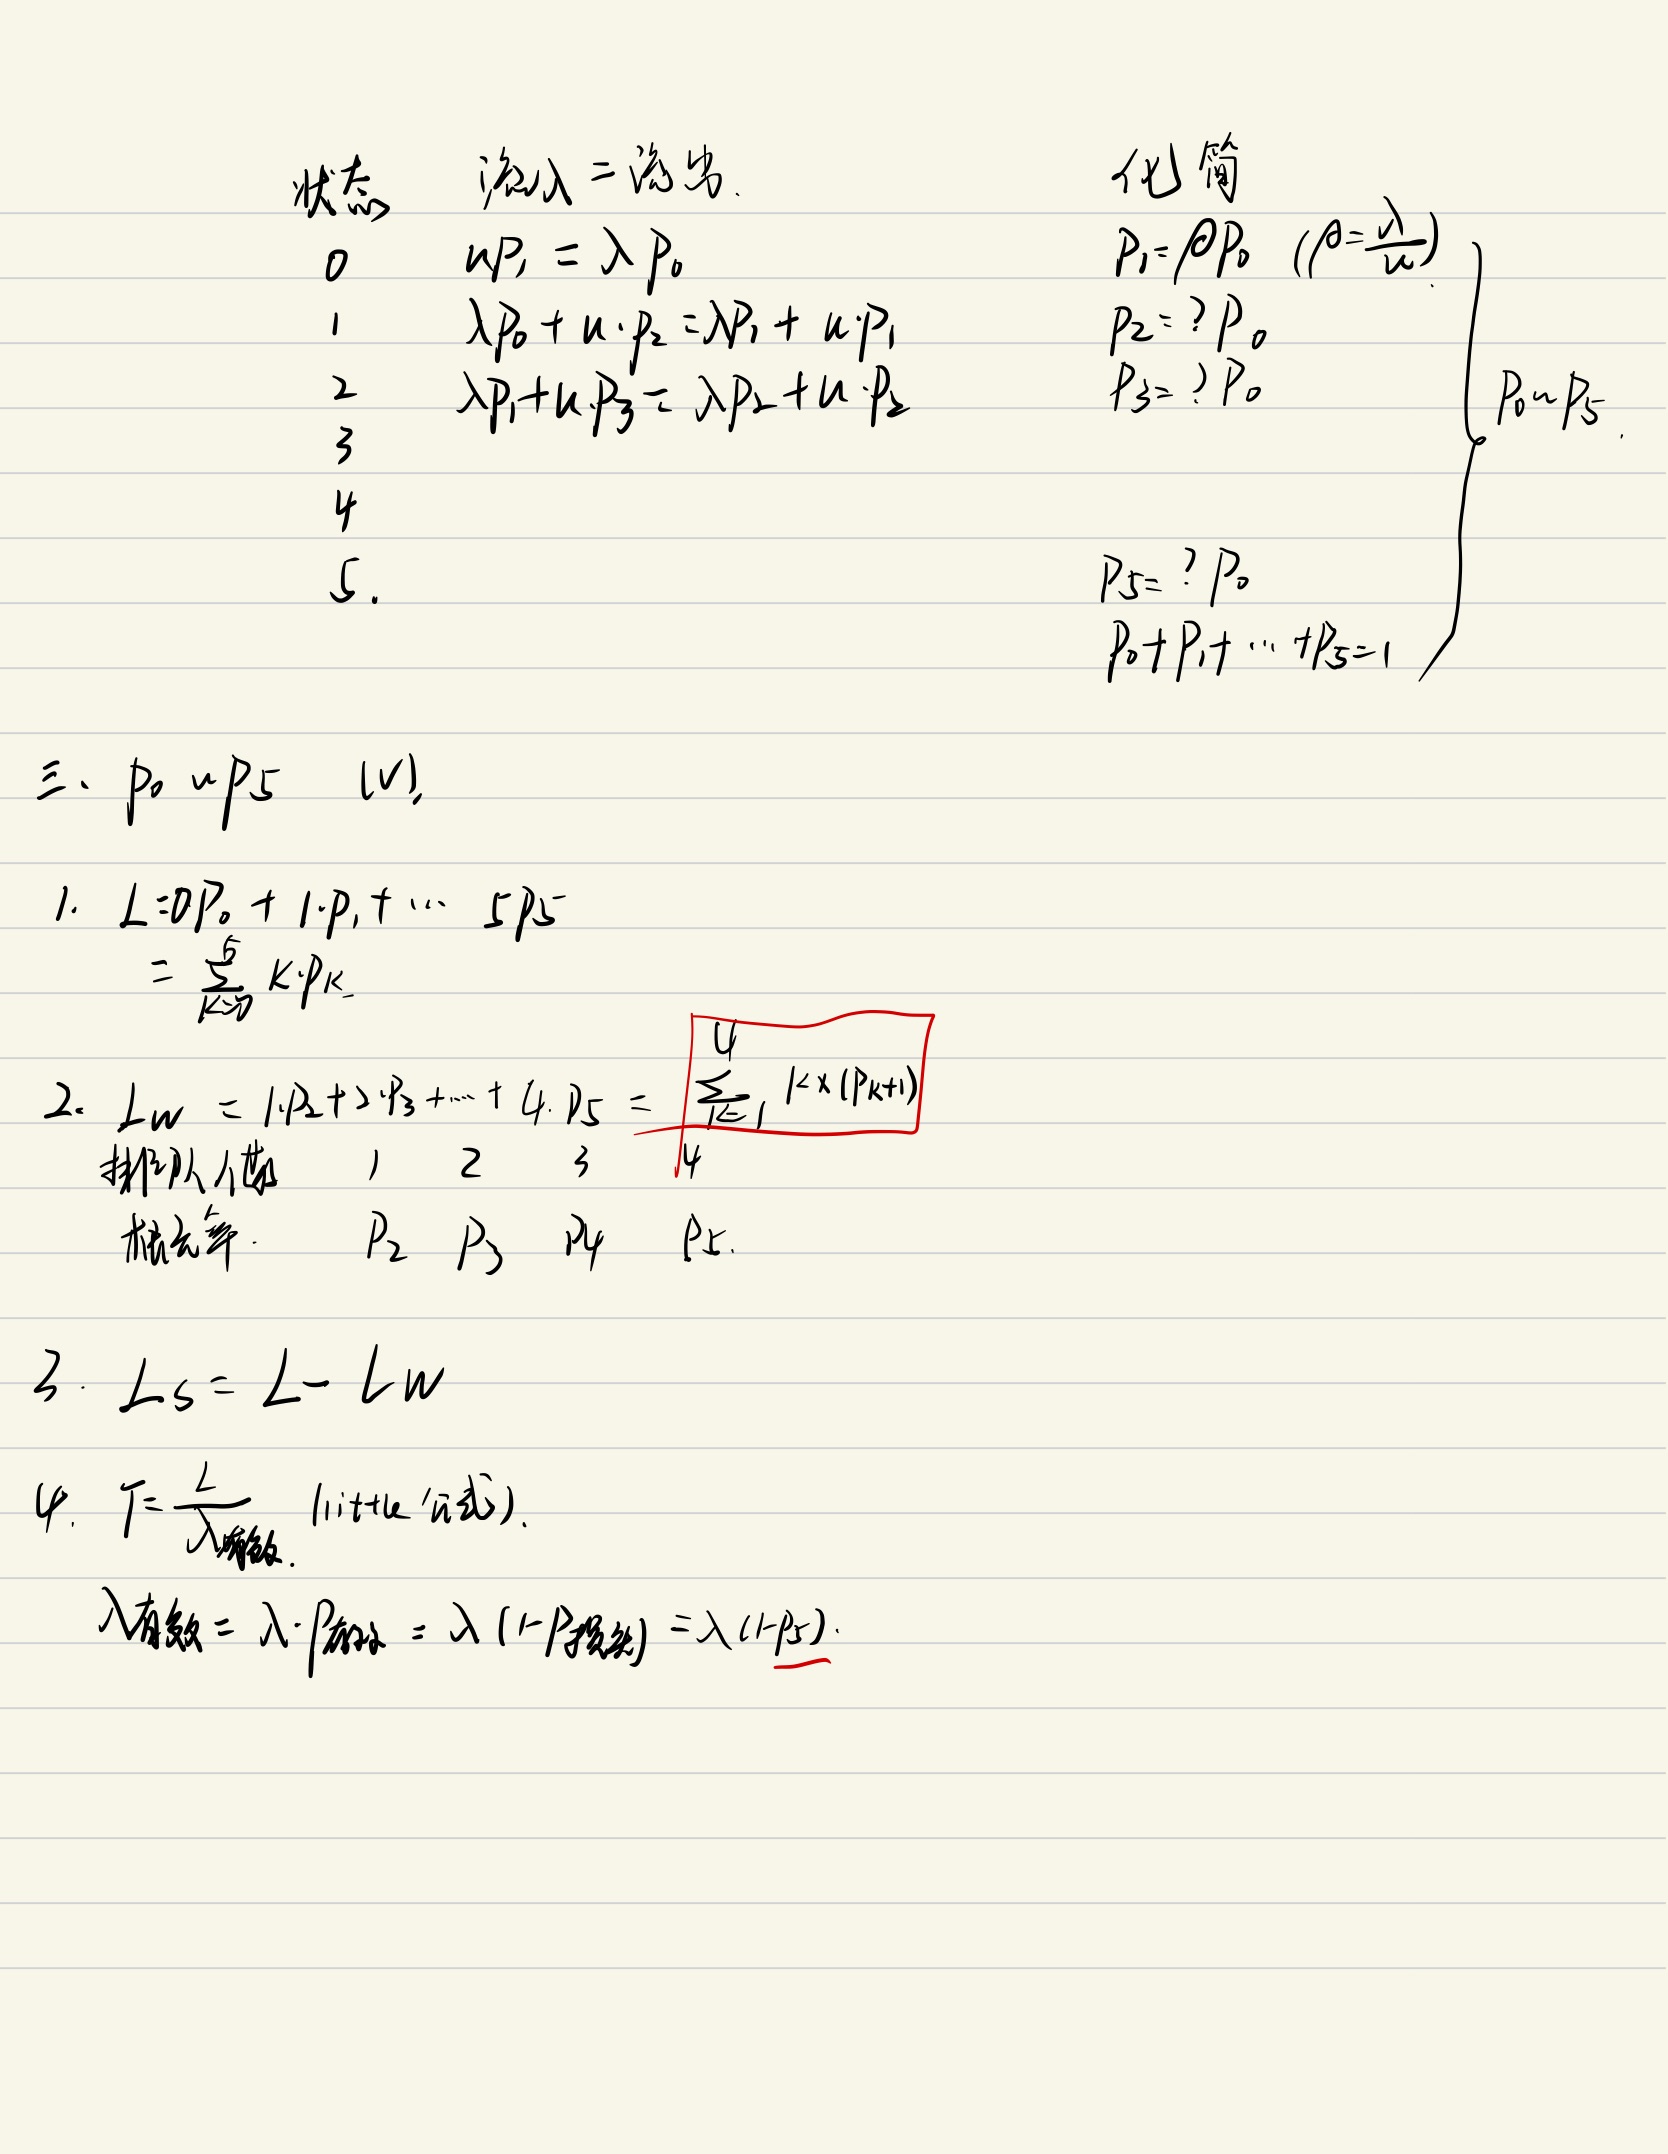 状态 流入=流出. 化简
0 uP₁ = λP₀ P₁=ρP₀ (ρ=λ/u).
1 λP₀+u·P₂=λP₁+u·P₁ P₂=?P₀
2 λP₁+u·P₃=λP₂+u·P₂ P₃=?P₀ P₀~P₅.
3
4
5. P₅=?P₀
P₀+P₁+…+P₅=1
三、P₀~P₅ (√).
1. L=0P₀+1·P₁+… 5P₅
=∑_{K=0}^{5} K·P_K
2. Lw=1·P₂+2·P₃+…+4·P₅=∑_{K=1}^{4} K×(P_{K+1})
排队人数 1 2 3 4
概率. P₂ P₃ P₄ P₅.
3. Ls=L-Lw
4. T=L/λ有效. (little公式).
λ有效=λ·P有效=λ(1-P损失)=λ(1-P₅).